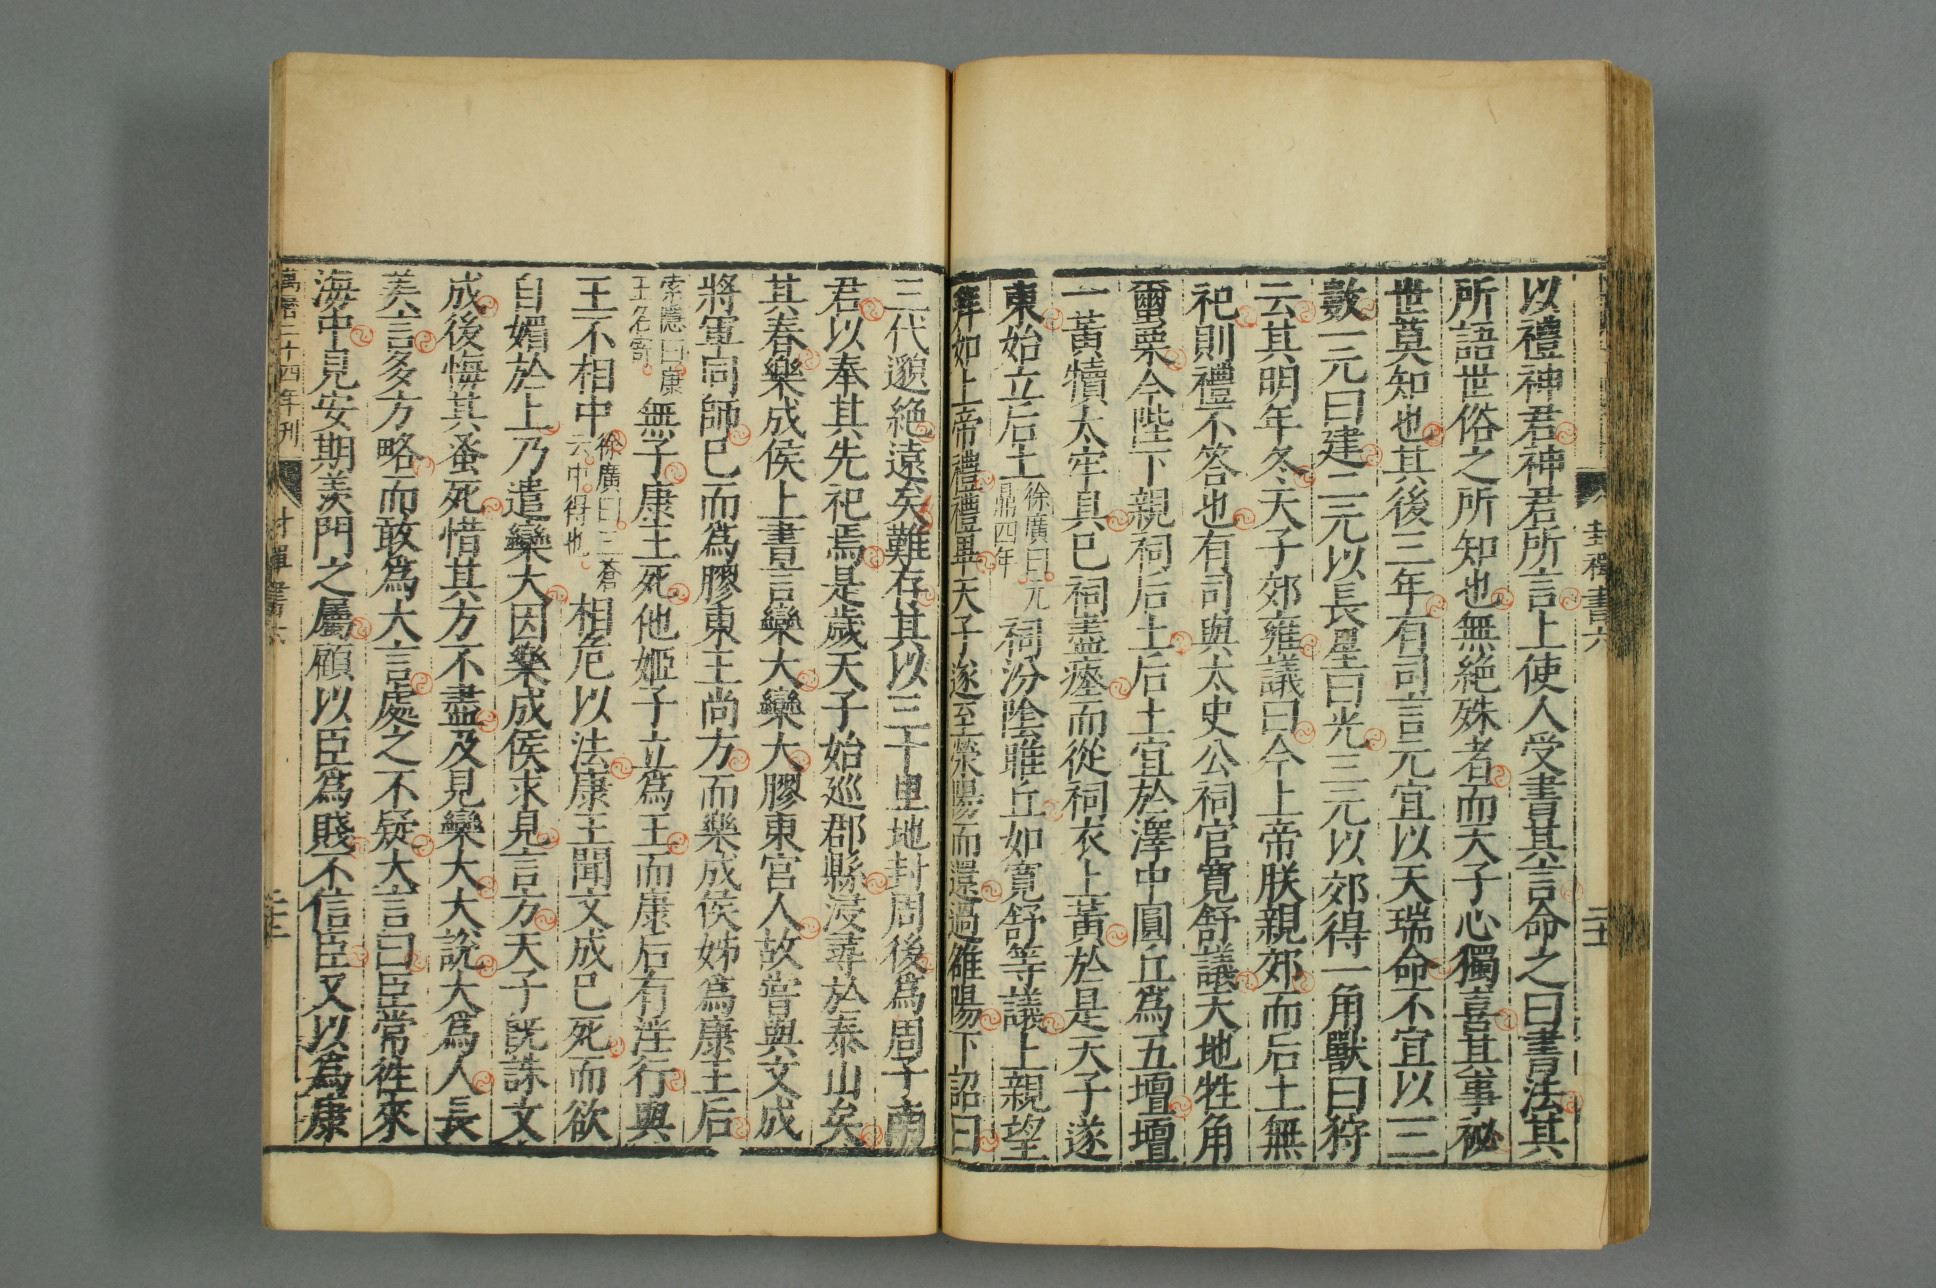 封禪書六
二十一
以禮神君神君所言上使人受書其言命之曰書法其
所語世俗之所知也無絶殊者而天子心獨喜其事祕
世莫知也其後三年有司言元宜以天瑞命不宜以一二
數一元曰建二元以長星曰光三元以郊得一角獸曰狩
云其明年冬天子郊雍議曰今上帝朕親郊而后土無
祀則禮不答也有司與太史公祠官寬舒議天地牲角
爾粟今陛下親祠后土后土宜於澤中圓丘爲五壇壇
一黃犢太牢具已祠盡瘞而從祠衣上黃於是天子遂
東始立后土徐廣曰元鼎四年祠汾陰雎丘如寬舒等議上親望
拜如上帝禮禮畢天子遂至滎陽而還過雒陽下詔曰
三代邈絶遠矣難存其以三十里地封周後爲周子南
君以奉其先祀焉是歲天子始巡郡縣浸尋於泰山矣
其春樂成侯上書言欒大欒大膠東宮人故嘗與文成
將軍同師已而爲膠東王尚方而樂成侯姊爲康王后
索隱曰康王名寄無子康王死他姬子立爲王而康后有淫行與
王不相中徐廣曰三蒼云中得也相危以法康王聞文成已死而欲
自媚於上乃遣欒大因樂成侯求見言方天子旣誅文
成後悔其蚤死惜其方不盡及見欒大大說大爲人長
美言多方略而敢爲大言處之不疑大言曰臣常徃來
海中見安期羨門之屬顧以臣爲賤不信臣又以爲康
萬曆二十四年刊
封禪書六
二十二